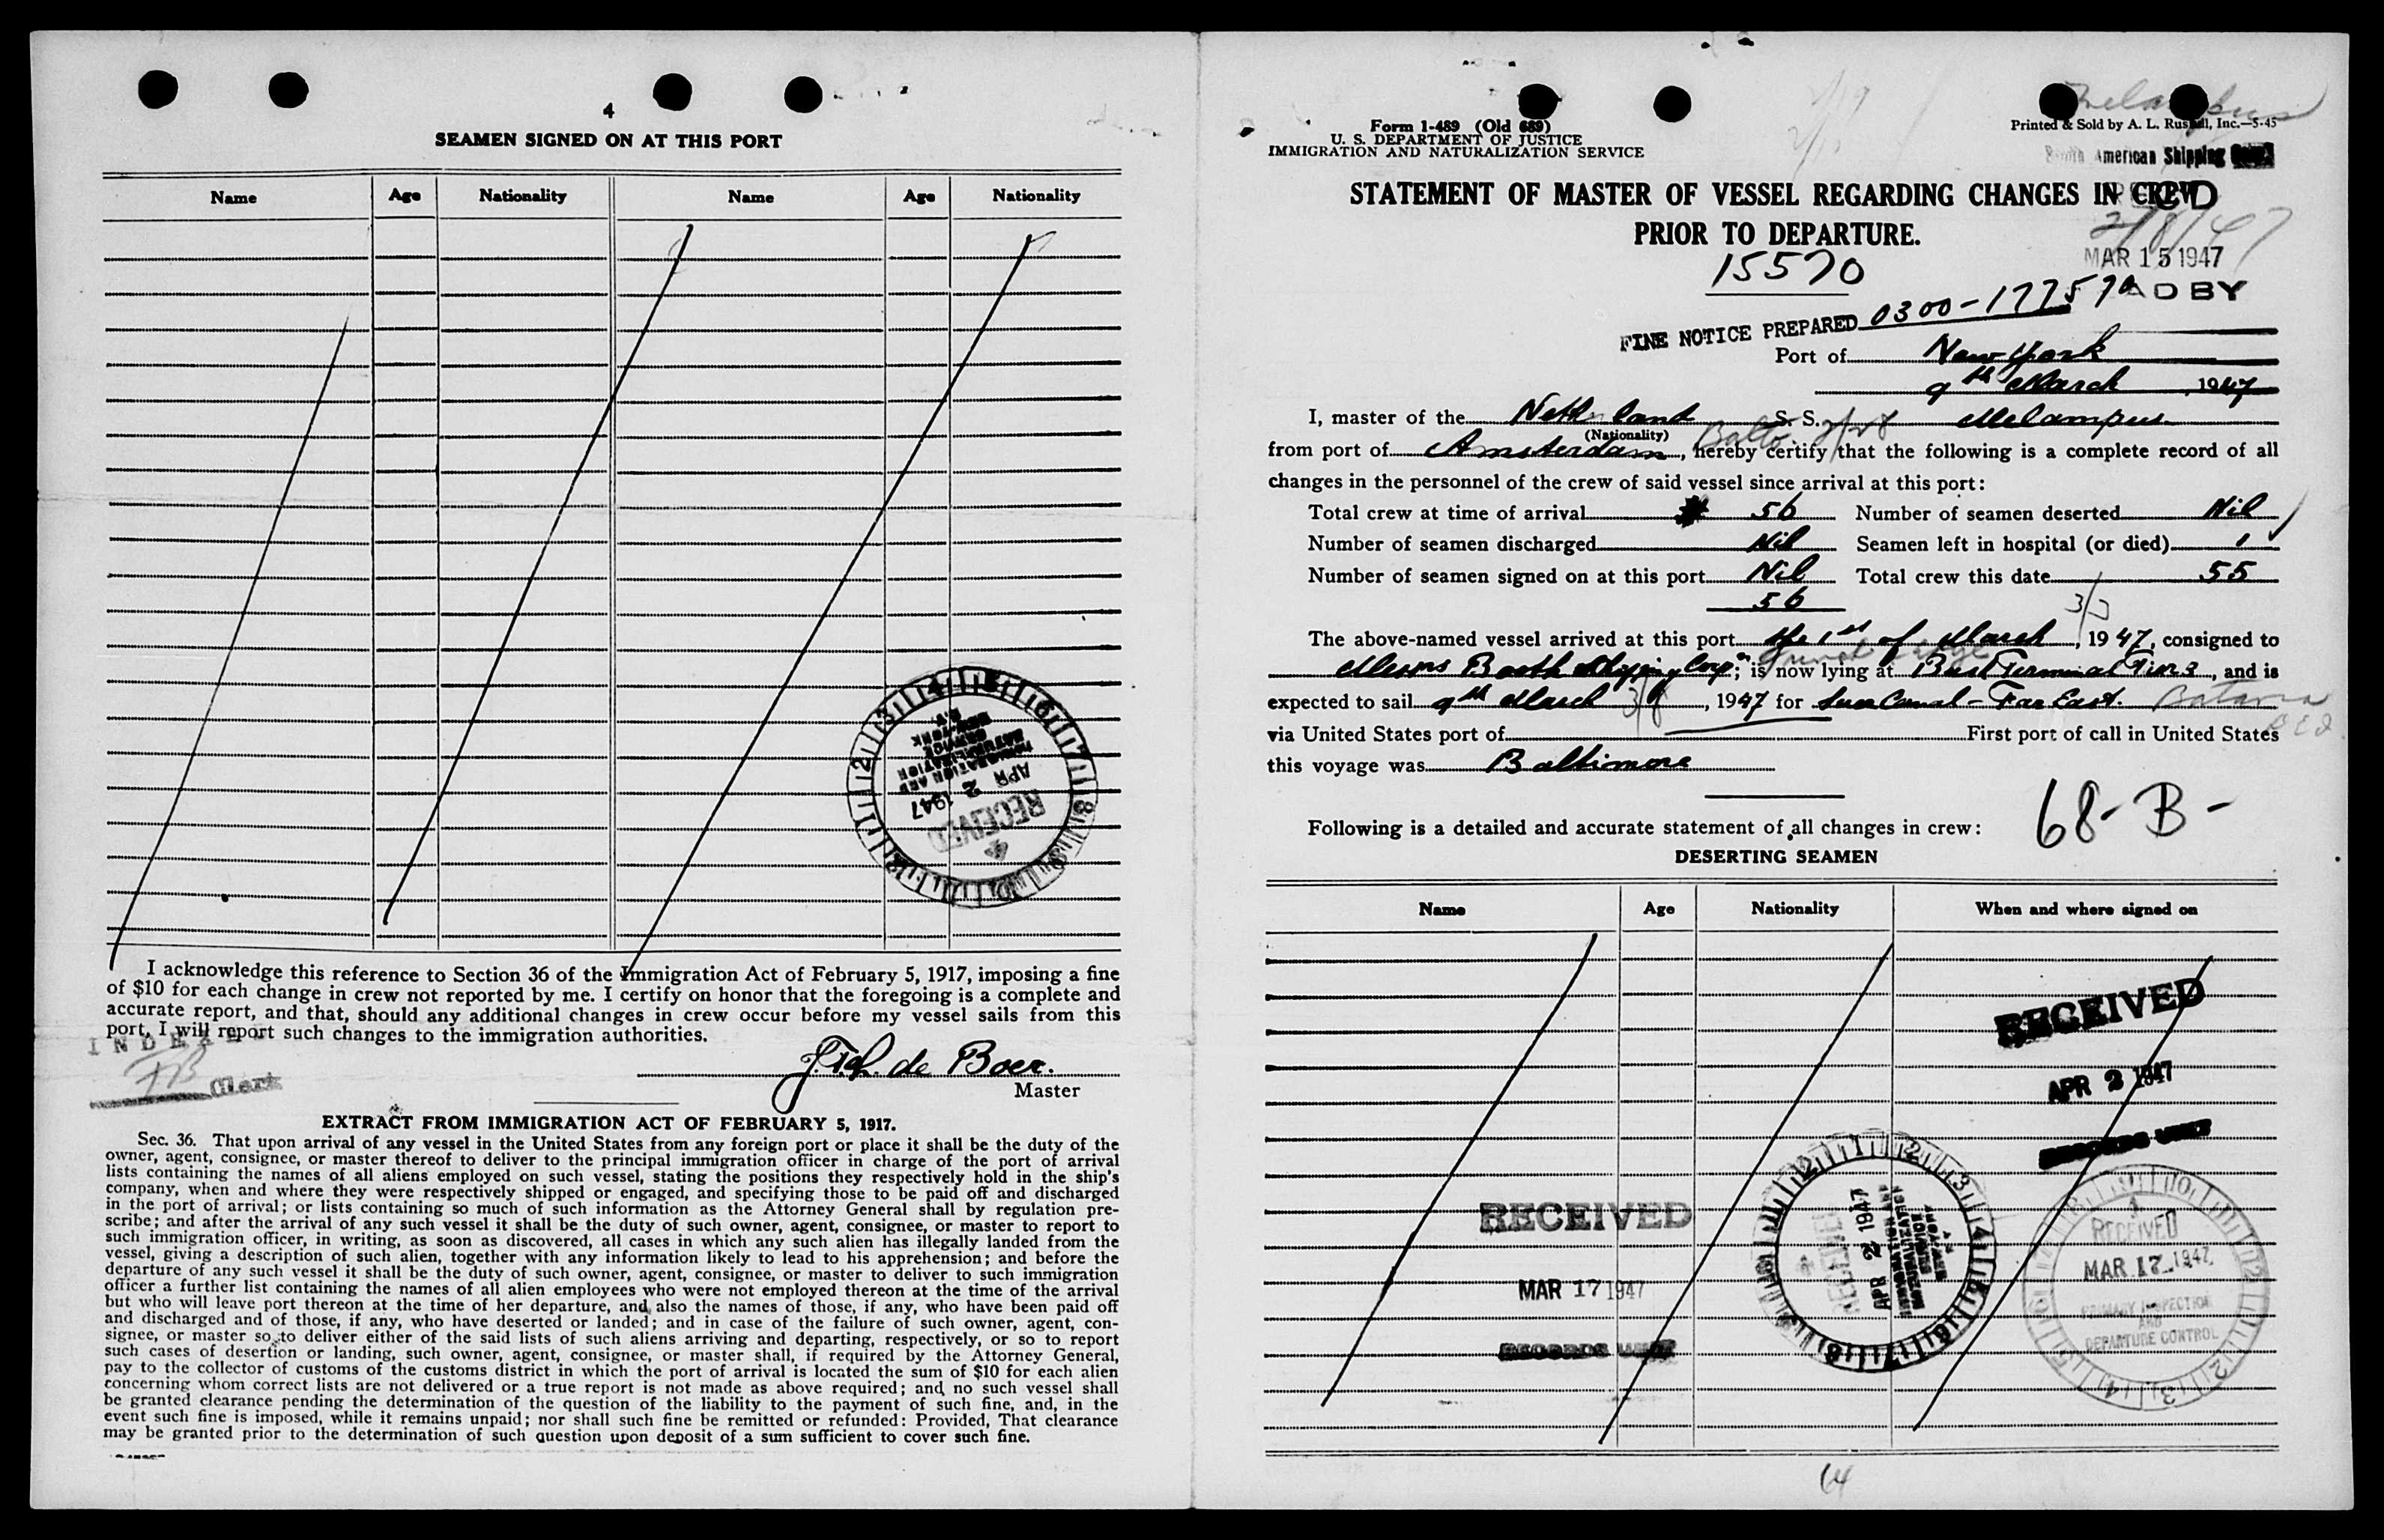 4
SEAMEN SIGNED ON AT THIS PORT
Name Age Nationality Name Age Nationality
4 RECEIVED
APR 2 1947
IMMIGRATION AND
NATURALIZATION
SERVICE
NEW YORK
N.Y.
I acknowledge this reference to Section 36 of the Immigration Act of February 5, 1917, imposing a fine
of $10 for each change in crew not reported by me. I certify on honor that the foregoing is a complete and
accurate report, and that, should any additional changes in crew occur before my vessel sails from this
port, I will report such changes to the immigration authorities.
FB Clerk
de Boer.
Master
EXTRACT FROM IMMIGRATION ACT OF FEBRUARY 5, 1917.
Sec. 36. That upon arrival of any vessel in the United States from any foreign port or place it shall be the duty of the
owner, agent, consignee, or master thereof to deliver to the principal immigration officer in charge of the port of arrival
lists containing the names of all aliens employed on such vessel, stating the positions they respectively hold in the ship's
company, when and where they were respectively shipped or engaged, and specifying those to be paid off and discharged
in the port of arrival; or lists containing so much of such information as the Attorney General shall by regulation pre-
scribe; and after the arrival of any such vessel it shall be the duty of such owner, agent, consignee, or master to report to
such immigration officer, in writing, as soon as discovered, all cases in which any such alien has illegally landed from the
vessel, giving a description of such alien, together with any information likely to lead to his apprehension; and before the
departure of any such vessel it shall be the duty of such owner, agent, consignee, or master to deliver to such immigration
officer a further list containing the names of all alien employees who were not employed thereon at the time of the arrival
but who will leave port thereon at the time of her departure, and also the names of those, if any, who have been paid off
and discharged and of those, if any, who have deserted or landed; and in case of the failure of such owner, agent, con-
signee, or master so to deliver either of the said lists of such aliens arriving and departing, respectively, or so to report
such cases of desertion or landing, such owner, agent, consignee, or master shall, if required by the Attorney General,
pay to the collector of customs of the customs district in which the port of arrival is located the sum of $10 for each alien
concerning whom correct lists are not delivered or a true report is not made as above required; and no such vessel shall
be granted clearance pending the determination of the question of the liability to the payment of such fine, and, in the
event such fine is imposed, while it remains unpaid; nor shall such fine be remitted or refunded: Provided, That clearance
may be granted prior to the determination of such question upon deposit of a sum sufficient to cover such fine.
Form I-489 (Old 689)
U. S. DEPARTMENT OF JUSTICE
IMMIGRATION AND NATURALIZATION SERVICE
Printed & Sold by A. L. Russell, Inc.—5-45
American Shipping
STATEMENT OF MASTER OF VESSEL REGARDING CHANGES IN CREW
PRIOR TO DEPARTURE.
MAR 15 1947
15570
BY
FINE NOTICE PREPARED 0300-177570
Port of New York
9th March, 1947
I, master of the Netherland S. S. Melampus
(Nationality)
from port of Amsterdam, Balto. 2/28 hereby certify that the following is a complete record of all
changes in the personnel of the crew of said vessel since arrival at this port:
Total crew at time of arrival 56 Number of seamen deserted Nil
Number of seamen discharged Nil Seamen left in hospital (or died) 1
Number of seamen signed on at this port Nil Total crew this date 55
56
3/3
The above-named vessel arrived at this port the 1st of March, 1947, consigned to
Messrs Booth Shipping Corp; is now lying at Bush Terminal Pier 3, and is
expected to sail 9th March, 1947 for Suez Canal - Far East. Batavia
via United States port of First port of call in United States
this voyage was Baltimore
68-B-
Following is a detailed and accurate statement of all changes in crew:
DESERTING SEAMEN
Name Age Nationality When and where signed on
RECEIVED
APR 2 1947
RECORDS UNIT
RECEIVED
MAR 17 1947
RECORDS UNIT
RECEIVED
APR 2 1947
IMMIGRATION AND
NATURALIZATION
SERVICE
NEW YORK
N.Y.
RECEIVED
MAR 17 1947
PRIMARY INSPECTION
AND
DEPARTURE CONTROL